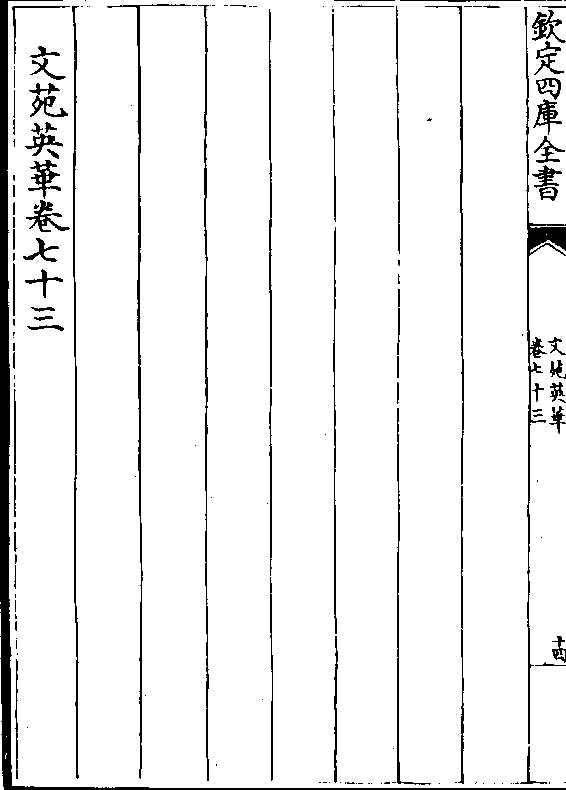 欽定四庫全書
文苑英華
卷七十三
十四
文苑英華卷七十三